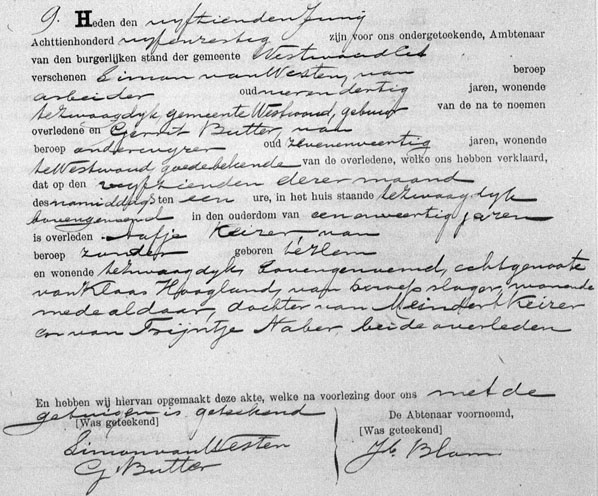 9. Heden den vyftienden Juny
Achttienhonderd vyfenzestig zijn voor ons ondergeteekende, Ambtenaar
van den burgerlijken stand der gemeente Westwoud
verschenen Simon van Westen, van beroep
arbeider oud en dertig jaren, wonende
te zwaagdyk, gemeente Westwoud, gebuur van de na te noemen
overledene en Gerrit Butter, van
beroep onderwyzer oud zevenenveertig jaren, wonende
te Westwoud goedebekende van de overledene, welke ons hebben verklaard,
dat op den vyftienden dezer maand
des namiddags ten een ure, in het huis staande te zwaagdyk
bovengenoemd in den ouderdom van eenenveertig jaren
is overleden Aafje Keizer van
beroep zonder geboren te
en wonende te zwaagdyk, bovengenoemd, echtgenoote
van Klaas Hoogland, van beroep slager, wonende
mede aldaar, dochter van Meindert Keizer
en van Trijntje Naber, beide overleden
En hebben wij hiervan opgemaakt deze akte, welke na voorlezing door ons met de
getuigen is geteekend
[Was geteekend]
Simon van Westen
G Butter
De Abtenaar voornoemd,
[Was geteekend]
Blom